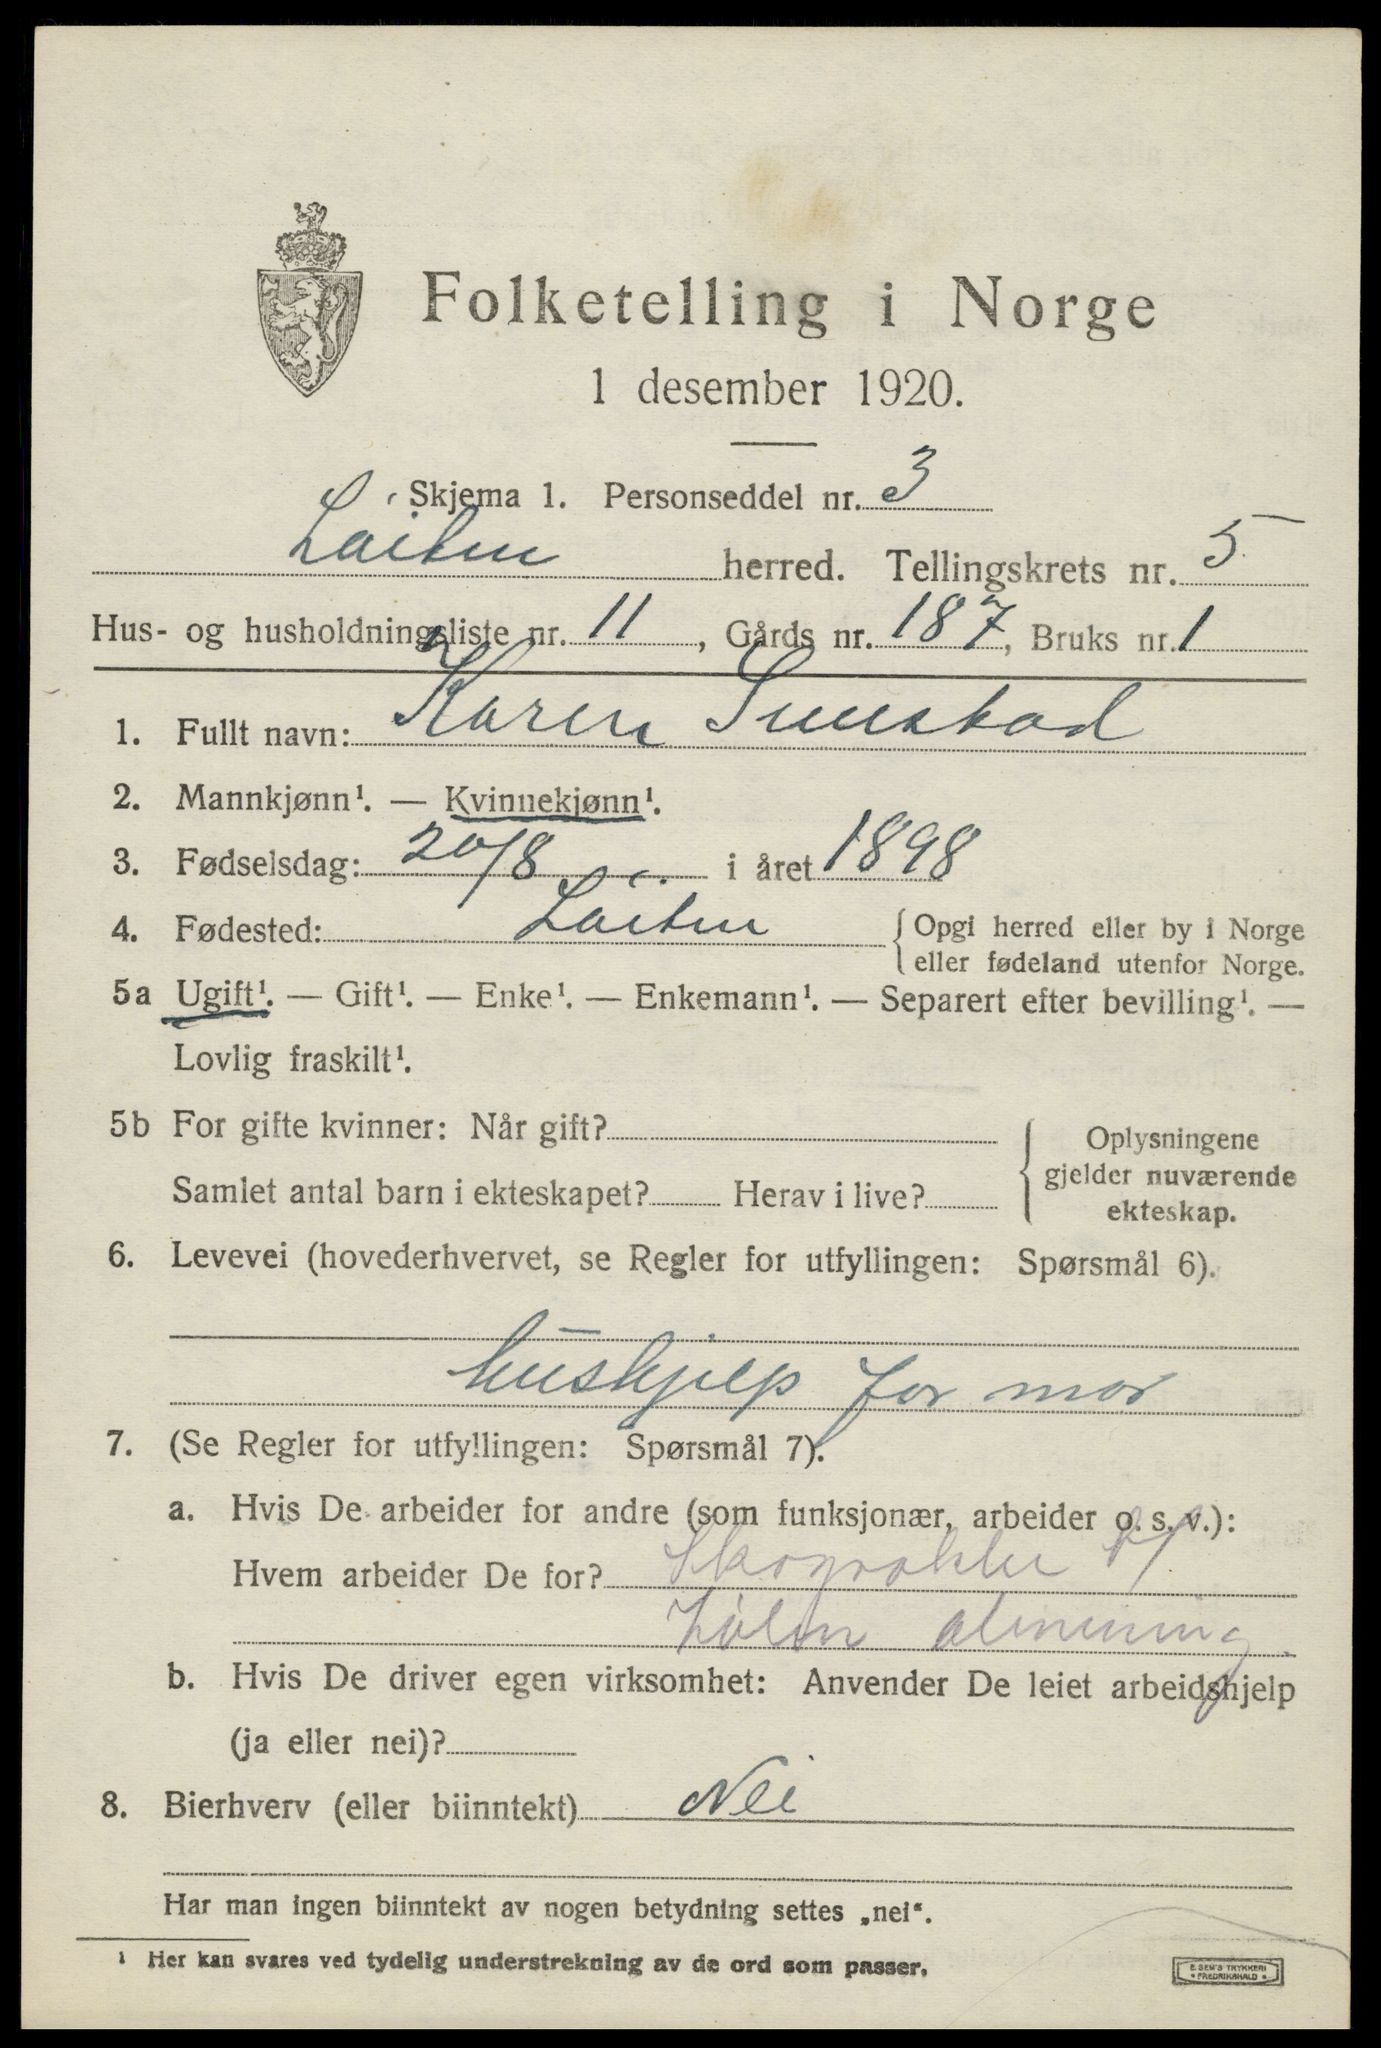 Folketelling i Norge
1 desember 1920.
Skjema 1. Personseddel nr. 3
Løiten herred. Tellingskrets nr. 5
Hus- og husholdningsliste nr. 11, Gårds nr. 187, Bruks nr. 1
1. Fullt navn: Karen
2. Mannkjønn¹. — Kvinnekjønn¹.
3. Fødselsdag: 20/8 i året 1898
4. Fødested: Løiten { Opgi herred eller by i Norge
eller fødeland utenfor Norge.
5a Ugift¹. — Gift¹. — Enke¹. — Enkemann¹. — Separert efter bevilling¹. —
Lovlig fraskilt¹.
5b For gifte kvinner: Når gift?
Samlet antal barn i ekteskapet? Herav i live?
{ Oplysningene
gjelder nuværende
ekteskap.
6. Levevei (hovederhvervet, se Regler for utfyllingen: Spørsmål 6).
hushjelp for mor
7. (Se Regler for utfyllingen: Spørsmål 7).
a. Hvis De arbeider for andre (som funksjonær, arbeider o. s. v.):
Hvem arbeider De for? Skogvokter
almenning
b. Hvis De driver egen virksomhet: Anvender De leiet arbeidshjelp
(ja eller nei)?
8. Bierhverv (eller biinntekt) Nei
Har man ingen biinntekt av nogen betydning settes „nei“.
¹ Her kan svares ved tydelig understrekning av de ord som passer.
E. SEM'S TRYKKERI
• FREDRIKSHALD •